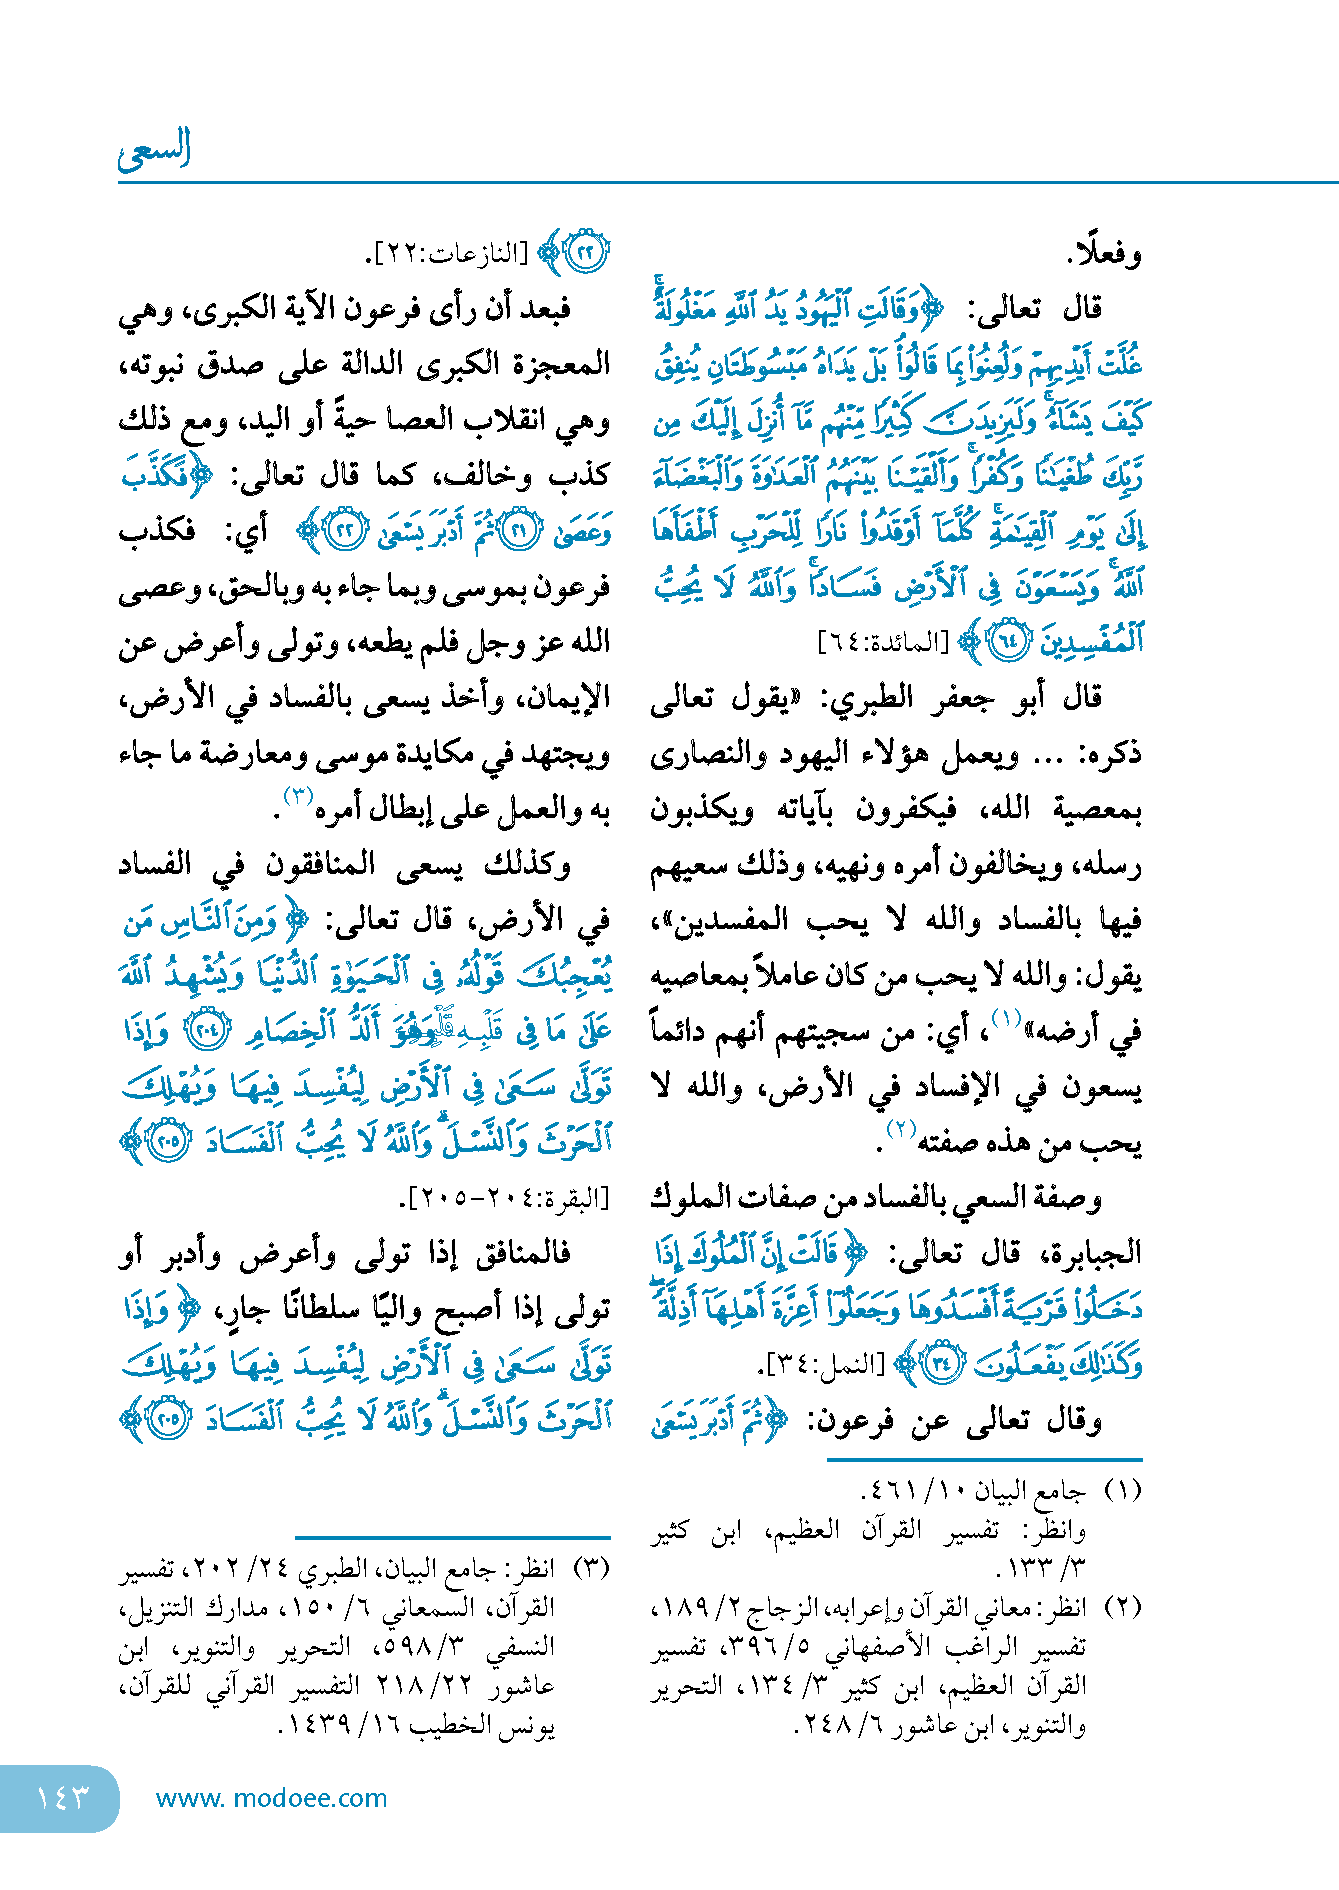 السعي
وفعلًا.
قال تعالى: ﴿وَقَالَتِ ٱلْيَهُودُ يَدُ ٱللَّهِ مَغْلُولَةٌ ۚ
غُلَّتْ أَيْدِيهِمْ وَلُعِنُوا۟ بِمَا قَالُوا۟ ۘ بَلْ يَدَاهُ مَبْسُوطَتَانِ يُنفِقُ
كَيْفَ يَشَآءُ ۚ وَلَيَزِيدَنَّ كَثِيرًا مِّنْهُم مَّآ أُنزِلَ إِلَيْكَ مِن
رَّبِّكَ طُغْيَٰنًا وَكُفْرًا ۚ وَأَلْقَيْنَا بَيْنَهُمُ ٱلْعَدَٰوَةَ وَٱلْبَغْضَآءَ
إِلَىٰ يَوْمِ ٱلْقِيَٰمَةِ ۚ كُلَّمَآ أَوْقَدُوا۟ نَارًا لِّلْحَرْبِ أَطْفَأَهَا
ٱللَّهُ ۚ وَيَسْعَوْنَ فِى ٱلْأَرْضِ فَسَادًا ۚ وَٱللَّهُ لَا يُحِبُّ
ٱلْمُفْسِدِينَ ٦٤﴾ [المائدة:٦٤]
قال أبو جعفر الطبري: «يقول تعالى
ذكره: ... ويعمل هؤلاء اليهود والنصارى
بمعصية الله، فيكفرون بآياته ويكذبون
رسله، ويخالفون أمره ونهيه، وذلك سعيهم
فيها بالفساد والله لا يحب المفسدين»،
يقول: والله لا يحب من كان عاملاً بمعاصيه
في أرضه»(١)، أي: من سجيتهم أنهم دائماً
يسعون في الإفساد في الأرض، والله لا
يحب من هذه صفته(٢).
وصفة السعي بالفساد من صفات الملوك
الجبابرة، قال تعالى: ﴿قَالَتْ إِنَّ ٱلْمُلُوكَ إِذَا
دَخَلُوا۟ قَرْيَةً أَفْسَدُوهَا وَجَعَلُوٓا۟ أَعِزَّةَ أَهْلِهَآ أَذِلَّةً ۖ
وَكَذَٰلِكَ يَفْعَلُونَ ٣٤﴾ [النمل:٣٤].
وقال تعالى عن فرعون: ﴿ثُمَّ أَدْبَرَ يَسْعَىٰ
(١) جامع البيان ١٠/ ٤٦١.
وانظر: تفسير القرآن العظيم، ابن كثير
٣/ ١٣٣.
(٢) انظر: معاني القرآن وإعرابه، الزجاج ٢/ ١٨٩،
تفسير الراغب الأصفهاني ٥/ ٣٩٦، تفسير
القرآن العظيم، ابن كثير ٣/ ١٣٤، التحرير
والتنوير، ابن عاشور ٦/ ٢٤٨.
٢٢﴾ [النازعات:٢٢].
فبعد أن رأى فرعون الآية الكبرى، وهي
المعجزة الكبرى الدالة على صدق نبوته،
وهي انقلاب العصا حيةً أو اليد، ومع ذلك
كذب وخالف، كما قال تعالى: ﴿فَكَذَّبَ
وَعَصَىٰ ٢١ ثُمَّ أَدْبَرَ يَسْعَىٰ ٢٢﴾ أي: فكذب
فرعون بموسى وبما جاء به وبالحق، وعصى
الله عز وجل فلم يطعه، وتولى وأعرض عن
الإيمان، وأخذ يسعى بالفساد في الأرض،
ويجتهد في مكايدة موسى ومعارضة ما جاء
به والعمل على إبطال أمره(٣).
وكذلك يسعى المنافقون في الفساد
في الأرض، قال تعالى: ﴿وَمِنَ ٱلنَّاسِ مَن
يُعْجِبُكَ قَوْلُهُۥ فِى ٱلْحَيَوٰةِ ٱلدُّنْيَا وَيُشْهِدُ ٱللَّهَ
عَلَىٰ مَا فِى قَلْبِهِۦ وَهُوَ أَلَدُّ ٱلْخِصَامِ ٢٠٤ وَإِذَا
تَوَلَّىٰ سَعَىٰ فِى ٱلْأَرْضِ لِيُفْسِدَ فِيهَا وَيُهْلِكَ
ٱلْحَرْثَ وَٱلنَّسْلَ ۗ وَٱللَّهُ لَا يُحِبُّ ٱلْفَسَادَ ٢٠٥﴾
[البقرة:٢٠٤-٢٠٥].
فالمنافق إذا تولى وأعرض وأدبر أو
تولى إذا أصبح واليًا سلطانًا جارٍ، ﴿وَإِذَا
تَوَلَّىٰ سَعَىٰ فِى ٱلْأَرْضِ لِيُفْسِدَ فِيهَا وَيُهْلِكَ
ٱلْحَرْثَ وَٱلنَّسْلَ ۗ وَٱللَّهُ لَا يُحِبُّ ٱلْفَسَادَ ٢٠٥﴾
(٣) انظر: جامع البيان، الطبري ٢٤/ ٢٠٢، تفسير
القرآن، السمعاني ٦/ ١٥٠، مدارك التنزيل،
النسفي ٣/ ٥٩٨، التحرير والتنوير، ابن
عاشور ٢٢/ ٢١٨ التفسير القرآني للقرآن،
يونس الخطيب ١٦/ ١٤٣٩.
www. modoee.com
١٤٣